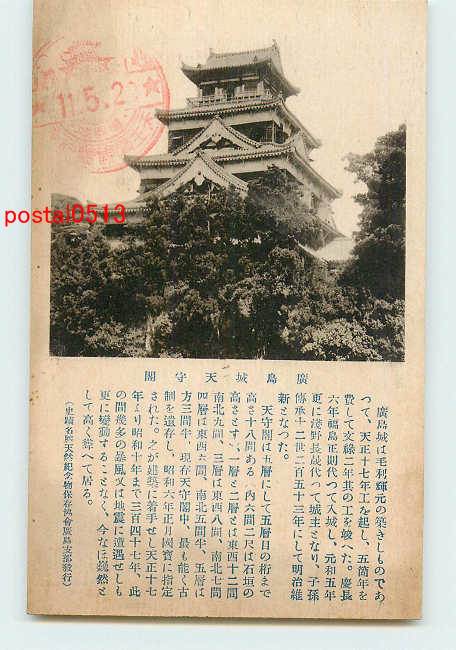 11.5.2
postal0513
廣島城天守閣
廣島城は毛利輝元の築きしものであ
つて、天正十七年工を起し、五箇年を
費して文祿二年其の工を竣へた。慶長
六年福島正則代つて入城し、元和五年
更に淺野長晟代つて城主となり、子孫
傳承十二世二百五十三年にして明治維
新となつた。
天守閣は五層にして五層目の桁まで
高さ十八間ある。內六間二尺は石垣の
高さとす、一層と二層とは東西十二間
南北九間、三層は東西八間、南北七間
四層は東西六間、南北五間半、五層は
方三間半、現存天守閣中、最も能く古
制を遺存し、昭和六年正月國寶に指定
された。之が建築に着手せし天正十七
年より昭和十年まで三百四十七年、此
の間幾多の暴風又は地震に遭遇せしも
更に變動することなく、今なほ巍然と
して高く聳へて居る。
(史蹟名勝天然紀念物保存協會廣島支部發行)